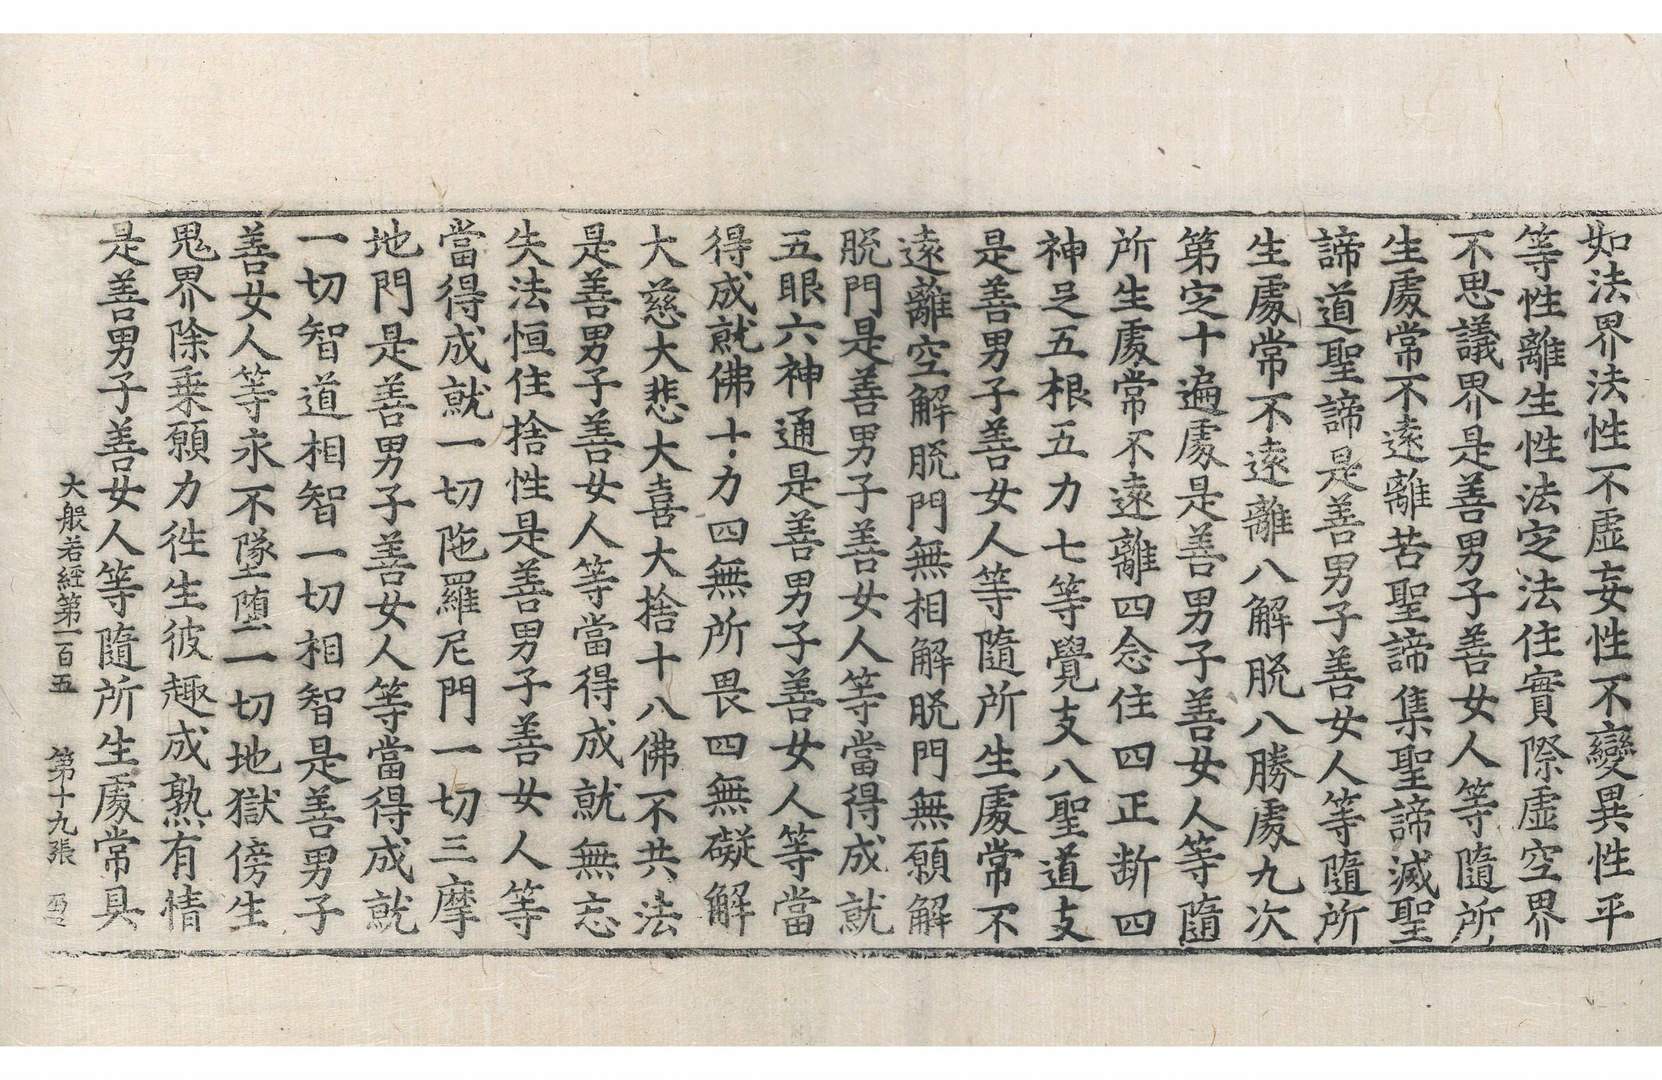 如法界法性不虛妄性不變異性平
等性離生性法定法住實際虛空界
不思議界是善男子善女人等隨所
生處常不遠離苦聖諦集聖諦滅聖
諦道聖諦是善男子善女人等隨所
生處常不遠離八解脫八勝處九次
第定十遍處是善男子善女人等隨
所生處常不遠離四念住四正斷四
神足五根五力七等覺支八聖道支
是善男子善女人等隨所生處常不
遠離空解脫門無相解脫門無願解
脫門是善男子善女人等當得成就
五眼六神通是善男子善女人等當
得成就佛十力四無所畏四無礙解
大慈大悲大喜大捨十八佛不共法
是善男子善女人等當得成就無忘
失法恒住捨性是善男子善女人等
當得成就一切陁羅尼門一切三摩
地門是善男子善女人等當得成就
一切智道相智一切相智是善男子
善女人等永不墜墮一切地獄傍生
鬼界除乗願力徃生彼趣成熟有情
是善男子善女人等隨所生處常具
大般若經第一百五 第十九張